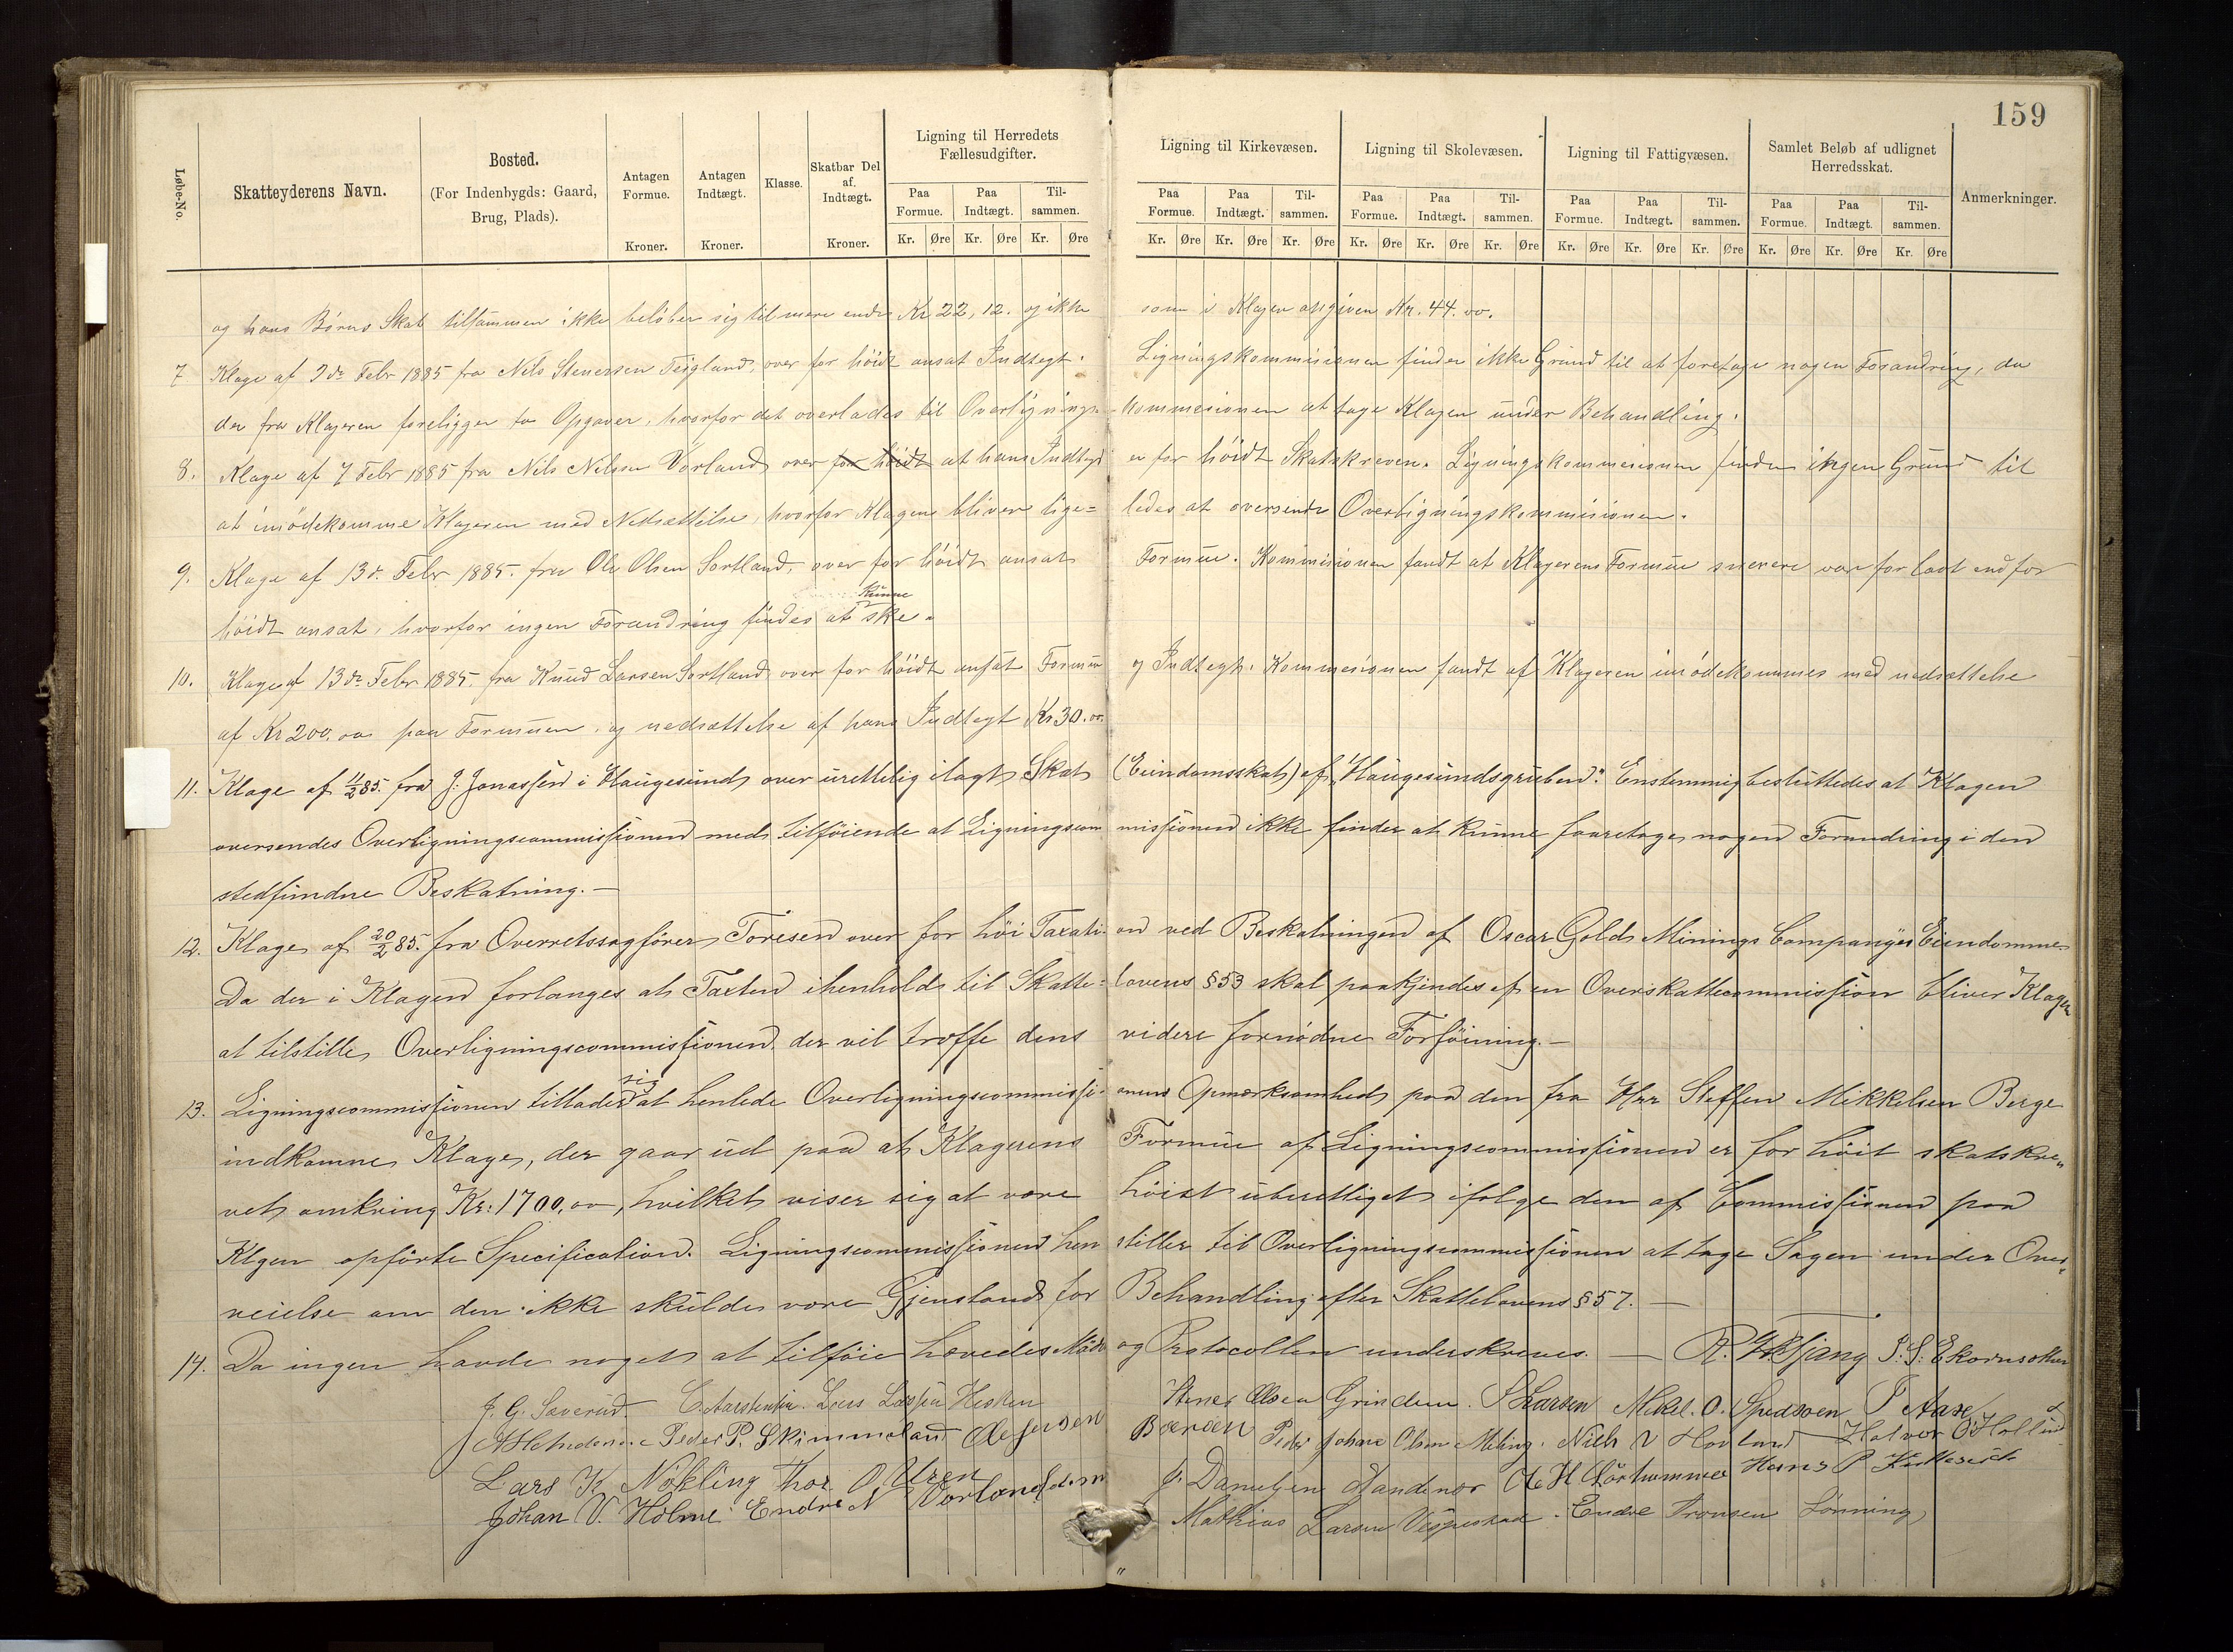 159
Løbe-No.
Skatteyderens Navn.
Bosted.
(For Indenbygds: Gaard,
Brug, Plads).
Antagen
Formue.
Kroner.
Antagen
Indtægt.
Kroner.
Klasse.
Skatbar Del
af
Indtægt.
Kroner.
Ligning til Herredets
Fællesudgifter.
Paa Formue. Paa Indtægt. Til-sammen.
Kr. Øre Kr. Øre Kr. Øre
Ligning til Kirkevæsen.
Paa Formue. Paa Indtægt. Til-sammen.
Kr. Øre Kr. Øre Kr. Øre
Ligning til Skolevæsen.
Paa Formue. Paa Indtægt. Til-sammen.
Kr. Øre Kr. Øre Kr. Øre
Ligning til Fattigvæsen.
Paa Formue. Paa Indtægt. Til-sammen.
Kr. Øre Kr. Øre Kr. Øre
Samlet Beløb af udlignet
Herredsskat.
Paa Formue. Paa Indtægt. Til-sammen.
Kr. Øre Kr. Øre Kr. Øre
Anmerkninger.
og hans Børns Skat tilsammen ikke beløber sig til mere end Kr 22,12. og ikke som i Klagen angiven Kr. 44.00.
7 Klage af 9de Febr 1885 fra Nils Stenersen Teigland, over for høidt ansat Indtegt. Ligningskommisionen finder ikke Grund til at foretage nogen Forandring, da
der fra Klageren foreligger to Opgaver, hvorfor det overlades til Overlignings-kommesionen at tage Klagen under Behandling.
8. Klage af 7 Febr 1885 fra Nils Nilsen Vorland over for høidt at hans Indtegt er for høidt Skatskreven. Ligningskommesionen finder ingen Grund til
at imødekomme Klageren med Nedsættelse, hvorfor Klagen bliver lige=ledes at oversende Overligningskommisionen.
9. Klage af 13de Febr 1885. fra Ole Olsen Sortland, over for høidt ansat Formue. Kommisionen fandt at Klagerens Formue snerere var for lavt end for
høidt ansat, hvorfor ingen Forandring findes at kunne ske.
10. Klage af 13de Febr 1885, fra Knud Larsen Sortland over for høidt ansat Formue og Indtegt. Kommesionen fandt at Klageren imødekommes med nedsættelse
af Kr 200.00 paa Formuen, og nedsættelse af hans Indtegt Kr 30.00.
11. Klage af 11/2 85. fra J. Jonassen i Haugesund over urettelig ilagt Skat (Eiindomsskat) af "Haugesundsgruben". Enstemmig besluttedes at Klagen
oversendes Overligningscommissionen med tilføiende at Ligningscommissionen ikke finder at kunne foaretage nogen Forandring i den
stedfundne Beskatning.—
12. Klage af 20/2 85. fra Overretssagfører Toresen over for høi Taxation ved Beskatningen af Oscar Gold Minings Companys Eiendomme.
Da der i Klagen forlanges at Taxten ihenhold til Skatte=lovens §53 skal paakjendes af en Overskattecommission bliver Klagen
at tilstille Overligningscommissionen, der vil træffe dens videre fornødne Forføining.—
13. Ligningscommissionen tillader sig at henlede Overligningscommissionens Opmærksomhed paa den fra Hrr Steffen Mikkelsen Berge
indkomne Klage, der gaar ud paa at Klagerens Formue af Ligningscommissionen er for høit skatskre„
vet omkring Kr: 1700,00, hvilket viser sig at være høist uberettiget ifølge den af Commissionen paa
Klgen opførte Specification. Ligningscommissionen henstiller til Overligningscommissionen at tage Sagen under Over„
veielse om den ikke skulde være Gjenstand for Behandling efter Skattelovens §57.—
14. Da ingen havde noget at tilføie hævedes Mødet og Protocollen underskreves. —
J. G. Saverud Lars Olsen Grinden. S Larsen Mikel. O. T Aase
Peder P. Skimmeland Peder Johan Olsen Meling. Niels N Hovland Halvor
Lars K. Nökling Thor O. Uren Hans P
Johan V. Holme Endre N Vorland Mathias Larsen Endre Tronsen Lønning